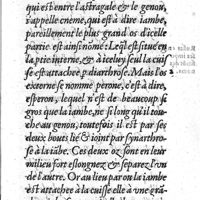 qui est entre l'astragale & le genou,
s'appelle cneme, qui est à dire iambe,
pareillement le plus grand os d'icelle
partie est ainsi nõmé: Leql est situé en
la ptie interne, & à iceluy seul la cuis
se est attachée p diarthrose. Mais l'os
externe se nomme perone, c'est à dire,
esperon, lequel n'est de beaucoup si
gros que la iambe, ne si long qu'il tou-
che au genou, toutesfois il est par ses
deux bouts lié & ioint par synarthro-
se à la iābe. Ces deux oz sont en leur
milieu fort eslongnez & separez l'vn
de l'autre. Or au lieu par ou la iambe
est attachée à la cuisse elle à vne grā-